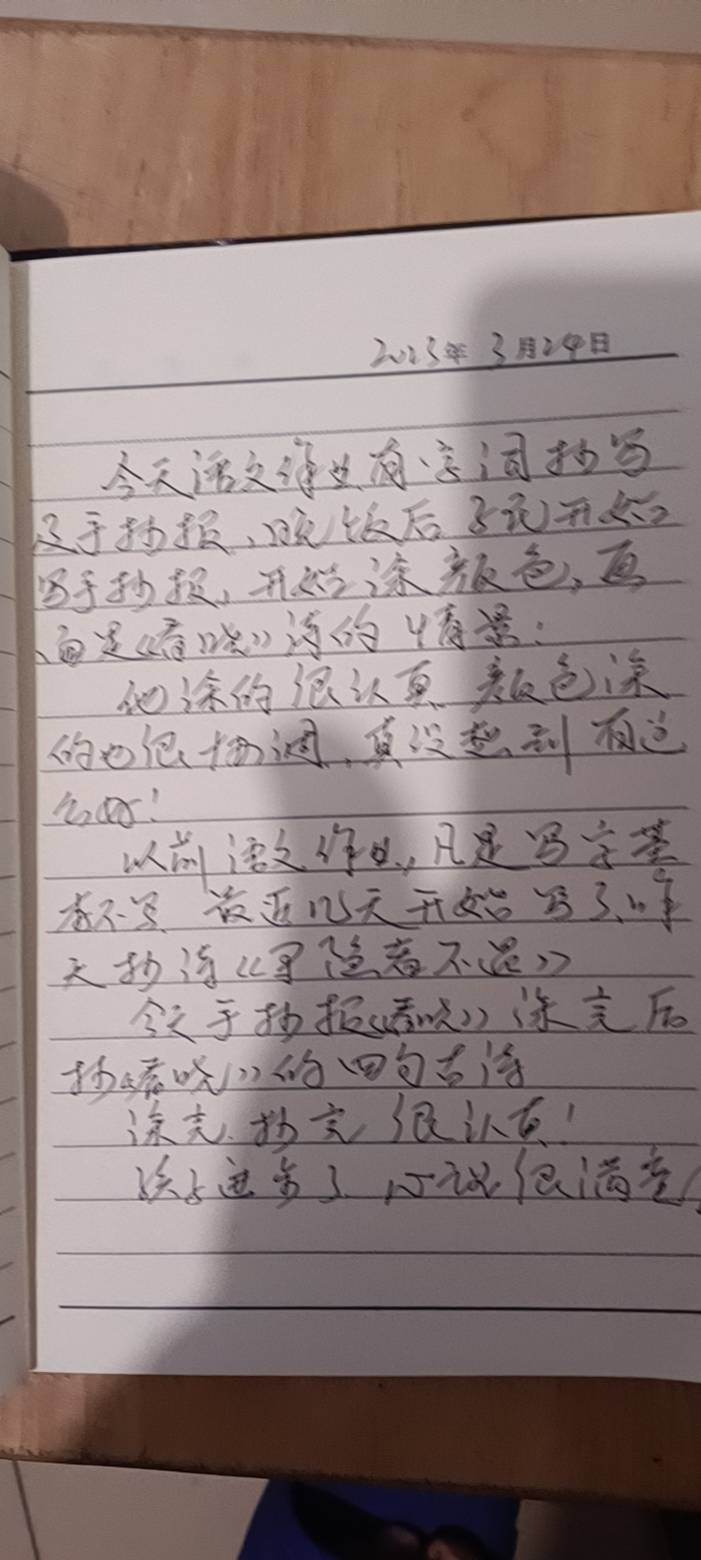 2023年 3月24日
今天语文作业有字词抄写
及手抄报,晚饭后 开始
写手抄报,开始涂颜色,画
面是《春晓》诗的情景:
他涂的很认真 颜色涂
的也很协调,真没想到有这
么好!
以前语文作业,凡是写字基
本不写 最近几天开始写了,昨
天抄诗《寻隐者不遇》
今天手抄报《春晓》涂完后
抄《春晓》的四句古诗
涂完、抄完 很认真!
孩子进步了、 很满意